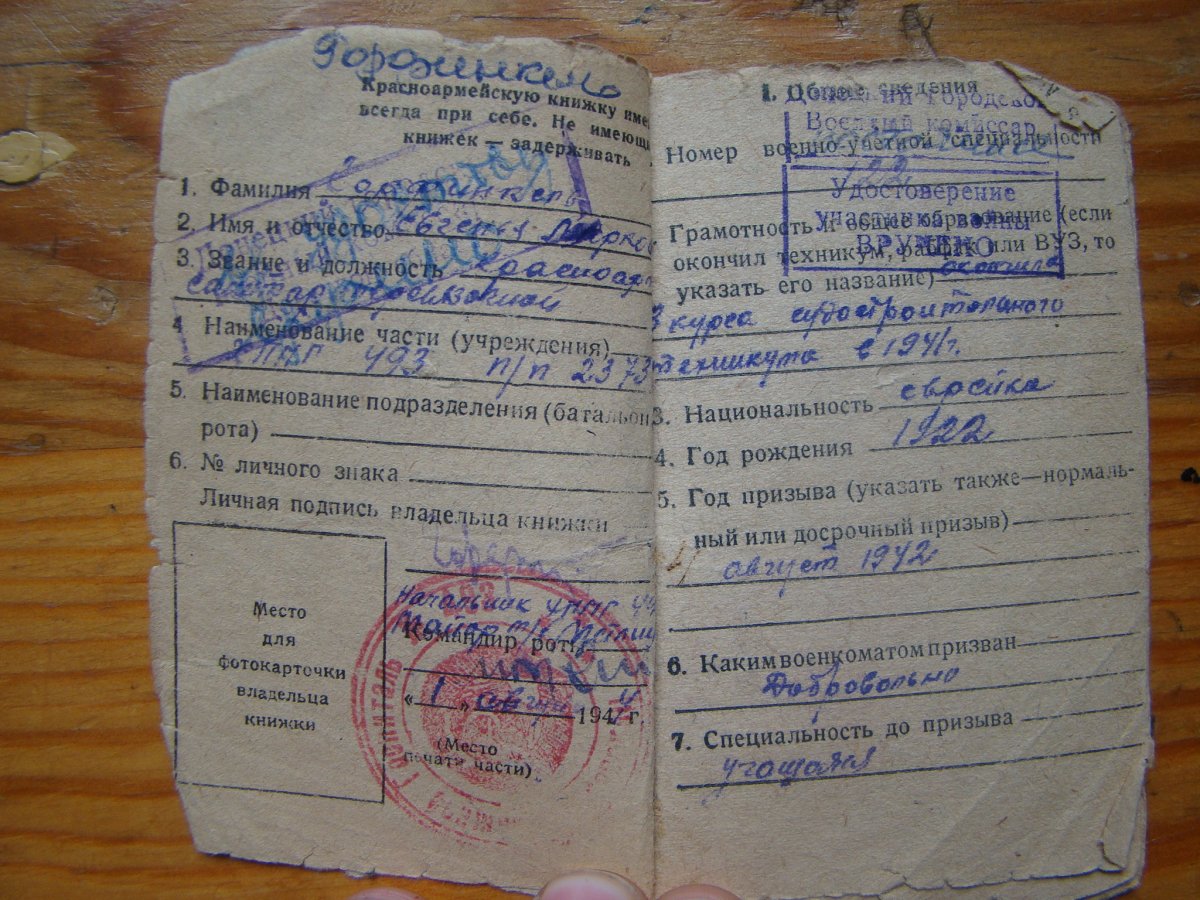 Красноармейскую книжку име
всегда при себе. Не имеющи
книжек — задерживать
1. Фамилия
2. Имя и отчество Евгения Марков
3. Звание и должность Красноар
санитарка
4 Наименование части (учреждения)
ППГ 493 п/п 2373
5. Наименование подразделения (батальон
рота)
6. № личного знака
Личная подпись владельца книжки
Место
для
фотокарточки
владельца
книжки
Начальник
Майор м/с
Командир роты
« 1 » август 1944 г.
(Место
печати части)
ГОСПИТАЛЬ
I. Общие сведения
Донецкий Городской
Военный комиссар
Номер военно-учетной специальности
122
Удостоверение
участника войны
ВРУЧЕНО
Грамотность и общее образование (если
окончил техникум, рабфак или ВУЗ, то
указать его название) окончила
3 курса судостроительного
техникума в 1941г.
3. Национальность еврейка
4. Год рождения 1922
5. Год призыва (указать также—нормаль-
ный или досрочный призыв)
август 1942
6. Каким военкоматом призван
Добровольно
7. Специальность до призыва
учащаяся